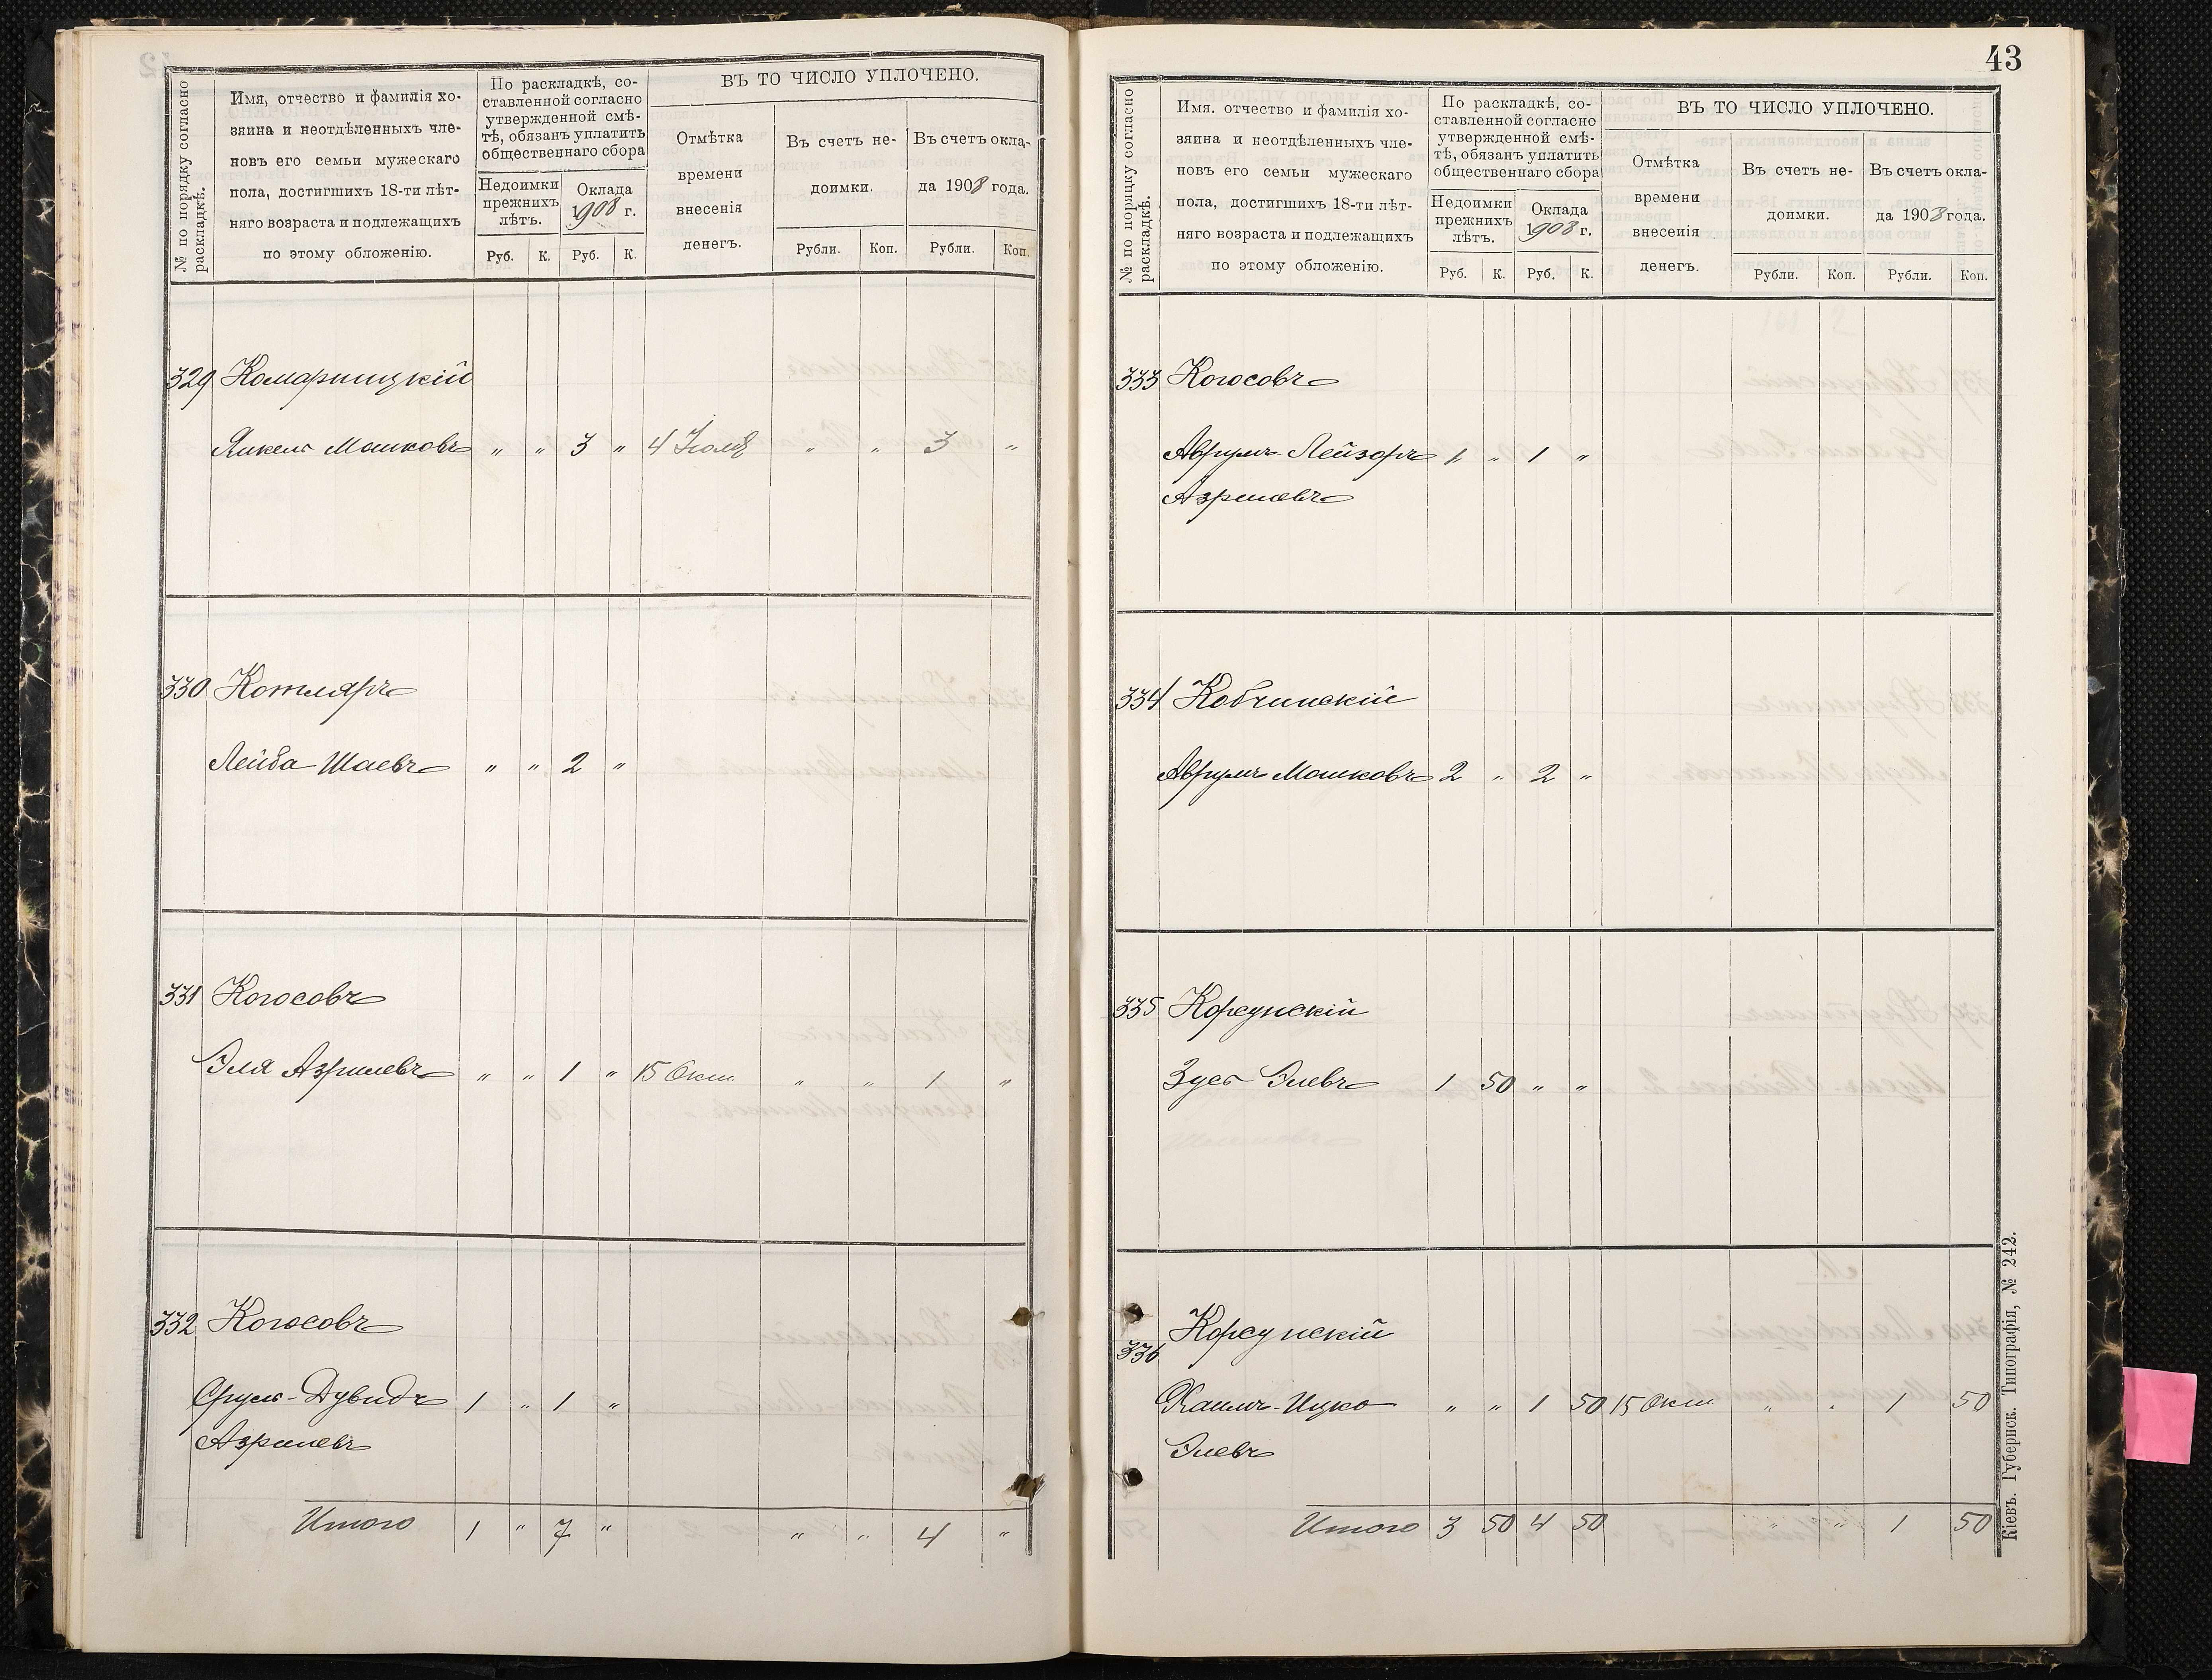 № по порядку согласно раскладкѣ.
Имя, отчество и фамилія хо-
зяина и неотдѣленныхъ чле-
новъ его семьи мужескаго
пола, достигшихъ 18-ти лѣт-
няго возраста и подлежащихъ
по этому обложенію.
По раскладкѣ, со-
ставленной согласно
утвержденной смѣ-
тѣ, обязанъ уплатить
общественнаго сбора
Недоимки прежнихъ лѣтъ.
Оклада 1908 г.
Руб. К. Руб. К.
ВЪ ТО ЧИСЛО УПЛОЧЕНО.
Отмѣтка
времени
внесенія
денегъ.
Въ счетъ не-
доимки.
Въ счетъ окла-
да 1908 года.
Рубли. Коп. Рубли. Коп.
329 Комарницкій
Янкель Мошковъ " " 3 " 4 Іюля " " 3 "
330 Котляръ
Лейба Шаевъ " " 2 "
331 Когосовъ
Эля Азрилевъ " " 1 " 15 Окт. " " 1 "
332 Когосовъ
Сруль-Дувидъ 1 " 1 "
Азрилевъ
Итого 1 " 7 " " " 4 "
43
№ по порядку согласно раскладкѣ.
Имя. отчество и фамилія хо-
зяина и неотдѣленныхъ чле-
новъ его семьи мужескаго
пола, достигшихъ 18-ти лѣт-
няго возраста и подлежащихъ
по этому обложенію.
По раскладкѣ, со-
ставленной согласно
утвержденной смѣ-
тѣ, обязанъ уплатить
общественнаго сбора
Недоимки прежнихъ лѣтъ.
Оклада 1908 г.
Руб. К. Руб. К.
ВЪ ТО ЧИСЛО УПЛОЧЕНО.
Отмѣтка
времени
внесенія
денегъ.
Въ счетъ не-
доимки.
Въ счетъ окла-
да 1908 года.
Рубли. Коп. Рубли. Коп.
333 Когосовъ
Аврумъ-Лейзоръ 1 " 1 "
Азрилевъ
334 Кобчинскій
Аврумъ Мошковъ 2 " 2 "
335 Корсунскій
Зусь Элевъ 1 50 " "
336 Корсунскій
Хаимъ-Ицко " " 1 50 15 Окт. " " 1 50
Элевъ
Итого 3 50 4 50 " " 1 50
Кіевъ. Губернск. Типографія, № 242.